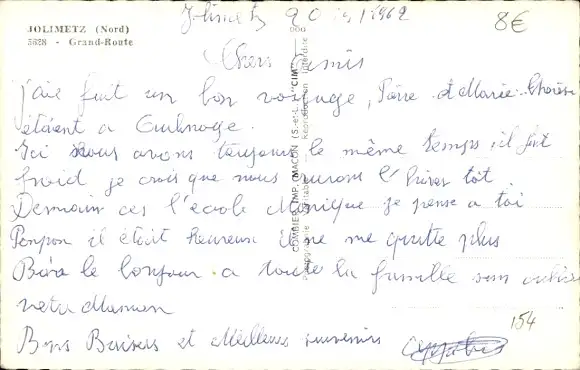 Jolimetz 20 /9/1962
8€
JOLIMETZ (Nord)
5628 - Grand-Route
Chers amis
j'aie fait un bon voyage, Paire et Marie Thérèse
étaient a Aulnoye.
Ici nous avons toujours le même temps il fait
froid je crois que nous aurons l'hiver tôt
Demain ces l'école Monique je pense a toi
Ponpon il était heureux il ne me quitte plus
le bonjour a toute la famille sans oublier
votre Maman
Bons Baisers et Meilleurs souvenirs
154
COMBIER IMP. MACON (S.-et-L.) "CIM"